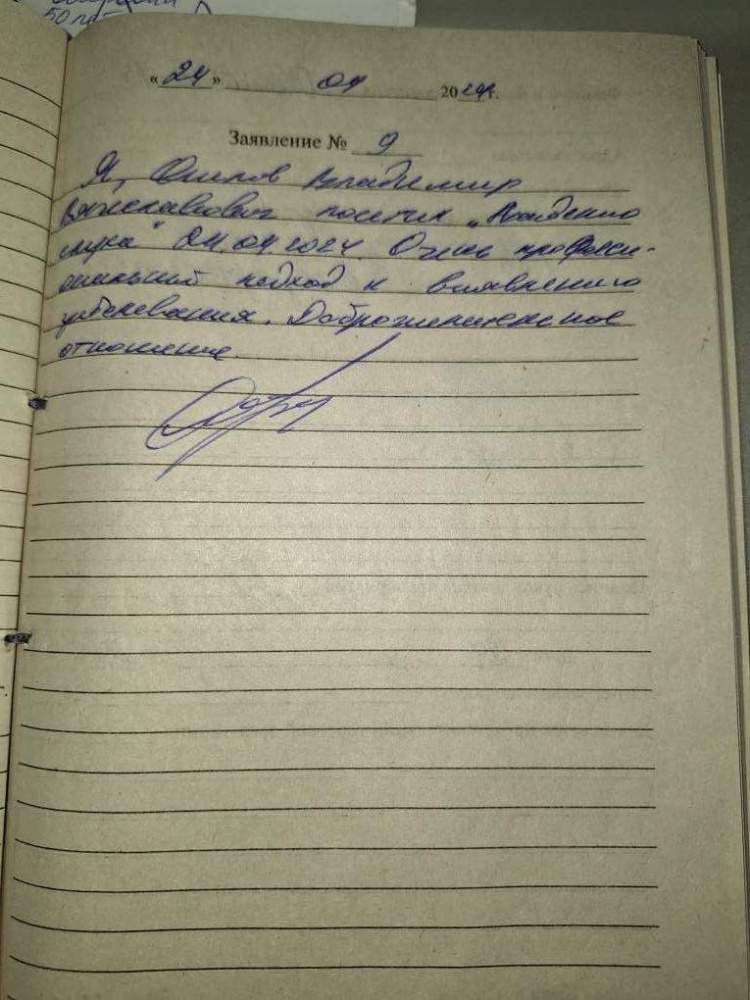 50
«24» 04 2024 г.
Заявление № 9
Я, Осипов Владимир
Вячеславович посетил „Академию
слуха“ 24.04.2024. Очень професси-
ональный подход к выявлению
заболевания. Доброжелательное
отношение.